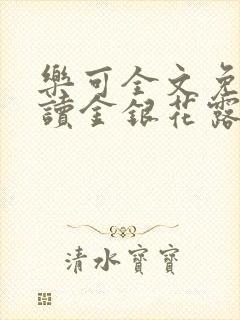 樂可全文免
讀金銀花露
清水寶寶